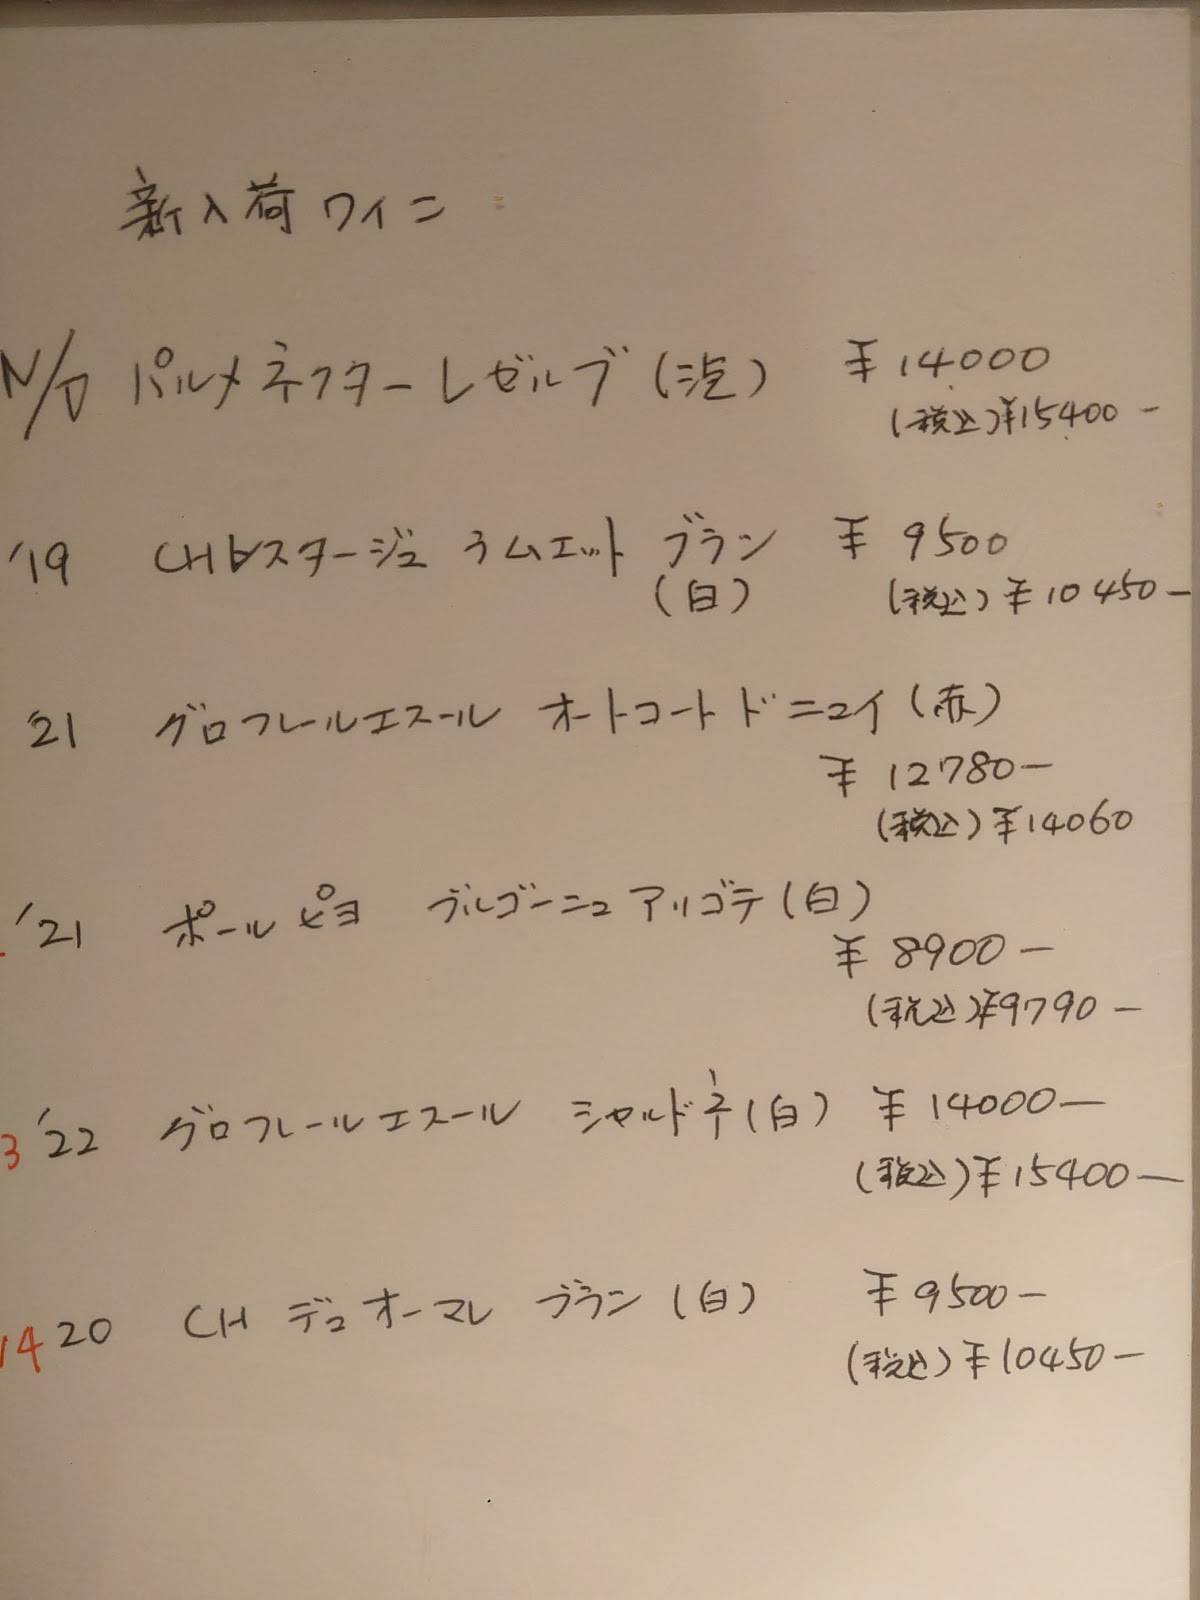 新入荷ワイン
N/D パルメネクターレゼルブ(泡) ¥14000
(税込)¥15400-
'19 CHレスタージュ ラムエット ブラン ¥9500
(白) (税込)¥10450-
'21 グロフレールエスール オートコートドニュイ(赤)
¥12780-
(税込)¥14060
'21 ポールピヨ ブルゴーニュアリゴテ(白)
¥8900-
(税込)¥9790-
3 '22 グロフレールエスール シャルドネ(白) ¥14000-
(税込)¥15400-
14 20 CH デュオーマレ ブラン(白) ¥9500-
(税込)¥10450-